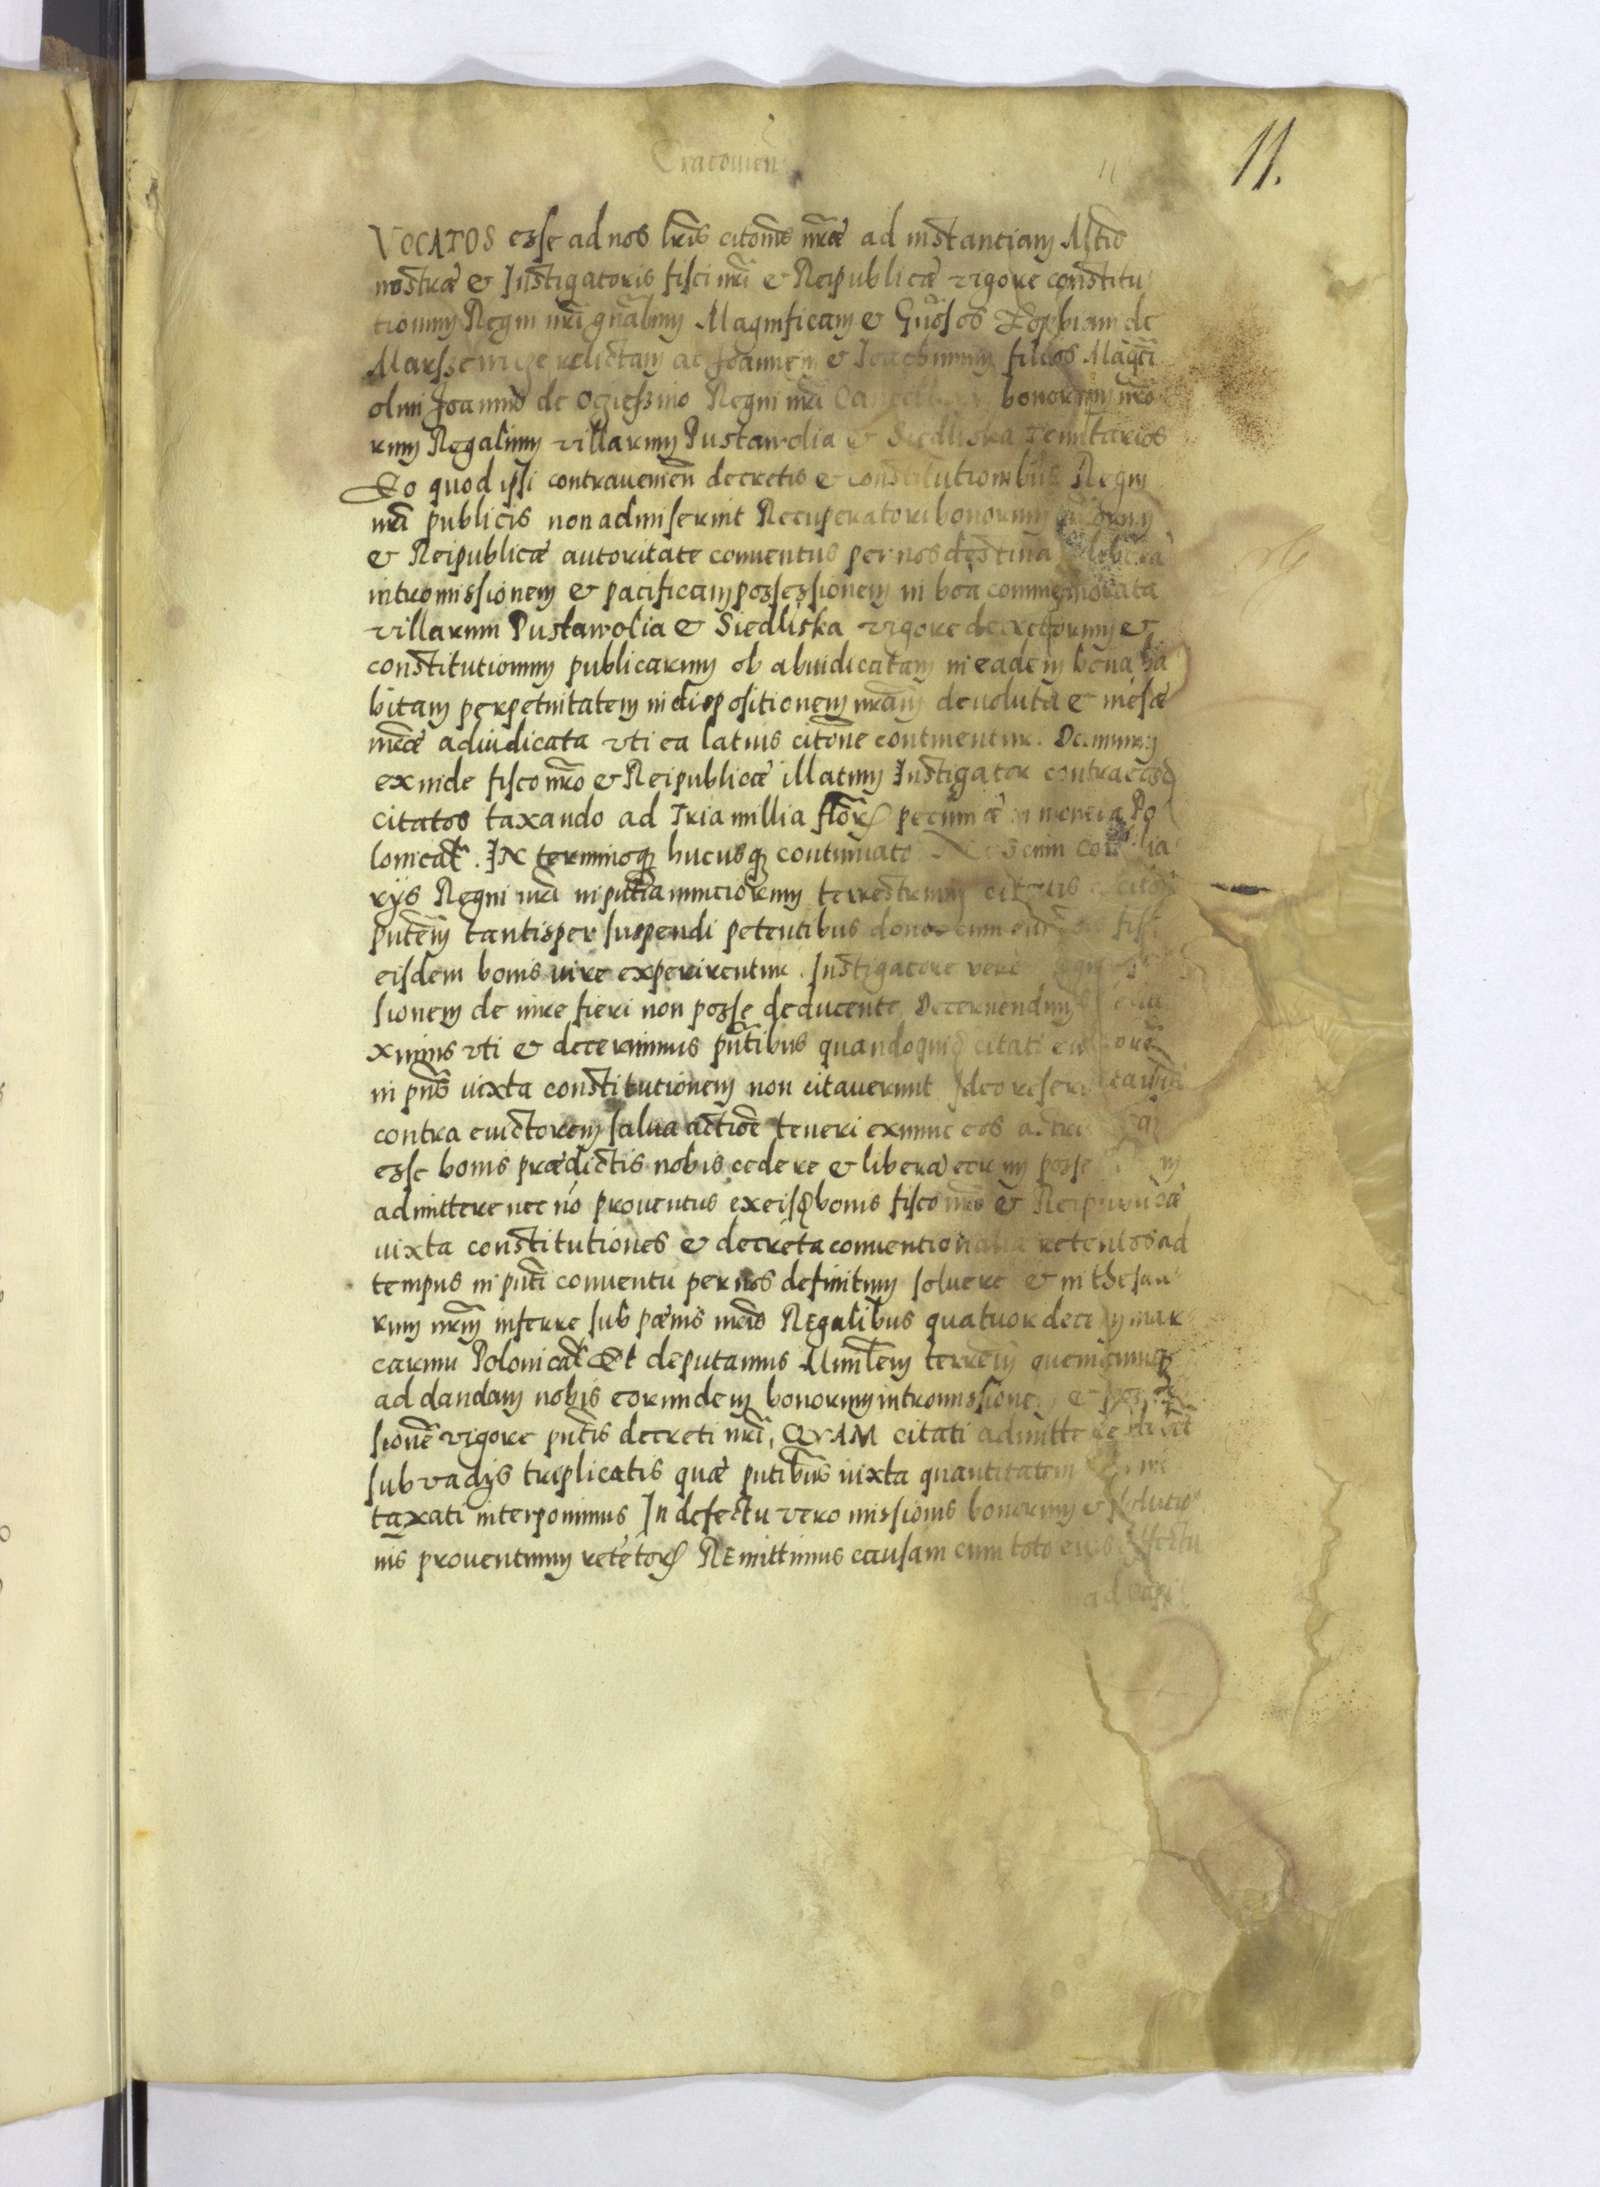 Cracovien
11.
VOCATOS esse ad nos lr̃is citõnis nr̃æ ad instantiam Mt̃is
nostræ & Instigatoris fisci nr̃i & Reipublicæ vigore constitu
tionum Regni nr̃i gñalium Magnificam & Gñosos Zophiam de
relictam ac Joannem & Joachimum filios Magci
olim Joannis de Ocziessino Regni nr̃i bonorum nr̃o
rum Regalium villarum Pustawolia & Siedliska Tenutarios
Eo quod ipsi contravenien decretis & constitutionibus Regni
nr̃i publicis non admiserint Recuperatori bonorum
& Reipublicæ autoritate conventus per nos destina
intromissionem & pacificam possessionem in boã commemorata
villarum Pustawolia & Siedliska vigore decretorum &
constitutionum publicarum ob abiudicatam in eadem bona ha
bitam perpetuitatem in dispositionem nr̃am devoluta & mesæ
nr̃æ adiudicata vti ea latius citõne continentur. Damnum
ex inde fisco nr̃o & Reipublicæ illatum Instigator contra eosd
citatos taxando ad Tria millia flor pecuniæ in moneta Po
lonical. IN terminoq hucusq continuato
rijs Regni nr̃i in pñtia nunciorum terrestrium
pñtem tantisper suspendi petentibus donec cum
eisdem bonis iure experirentur. Instigatore vero
sionem de iure fieri non posse deducente Decernendum
ximus vti & decernimus pñtibus quandoquid citati
in pñs iuxta constitutionem non citaverunt Ideo
contra euictorem salua actiõe teneri exnunc eos
esse bonis prædictis nobis cedere & liberã eorum posse
admittere nec nõ proventus ex eisd bonis fisco nr̃o & Reipublicæ
iuxta constitutiones & decreta conventionalia retentos ad
tempus in pñti conventu per nos definitum solvere & in thesau
rum nr̃m inferre sub pœnis nr̃is REgalibus quatuordecim mar
carum Polonical Et deputamus Minlem terrem quemcumq
ad dandam nobis eorundem bonorum intromissionem &
sionẽ vigore pñtis decreti nr̃i, QVAM citati admittere
sub vadijs triplicatis quæ pñtibus iuxta quantitatem
taxati interponimus In defectu vero missionis bonorum & solutio
nis proventuum retẽtor REmittimus causam cum toto eius effectu